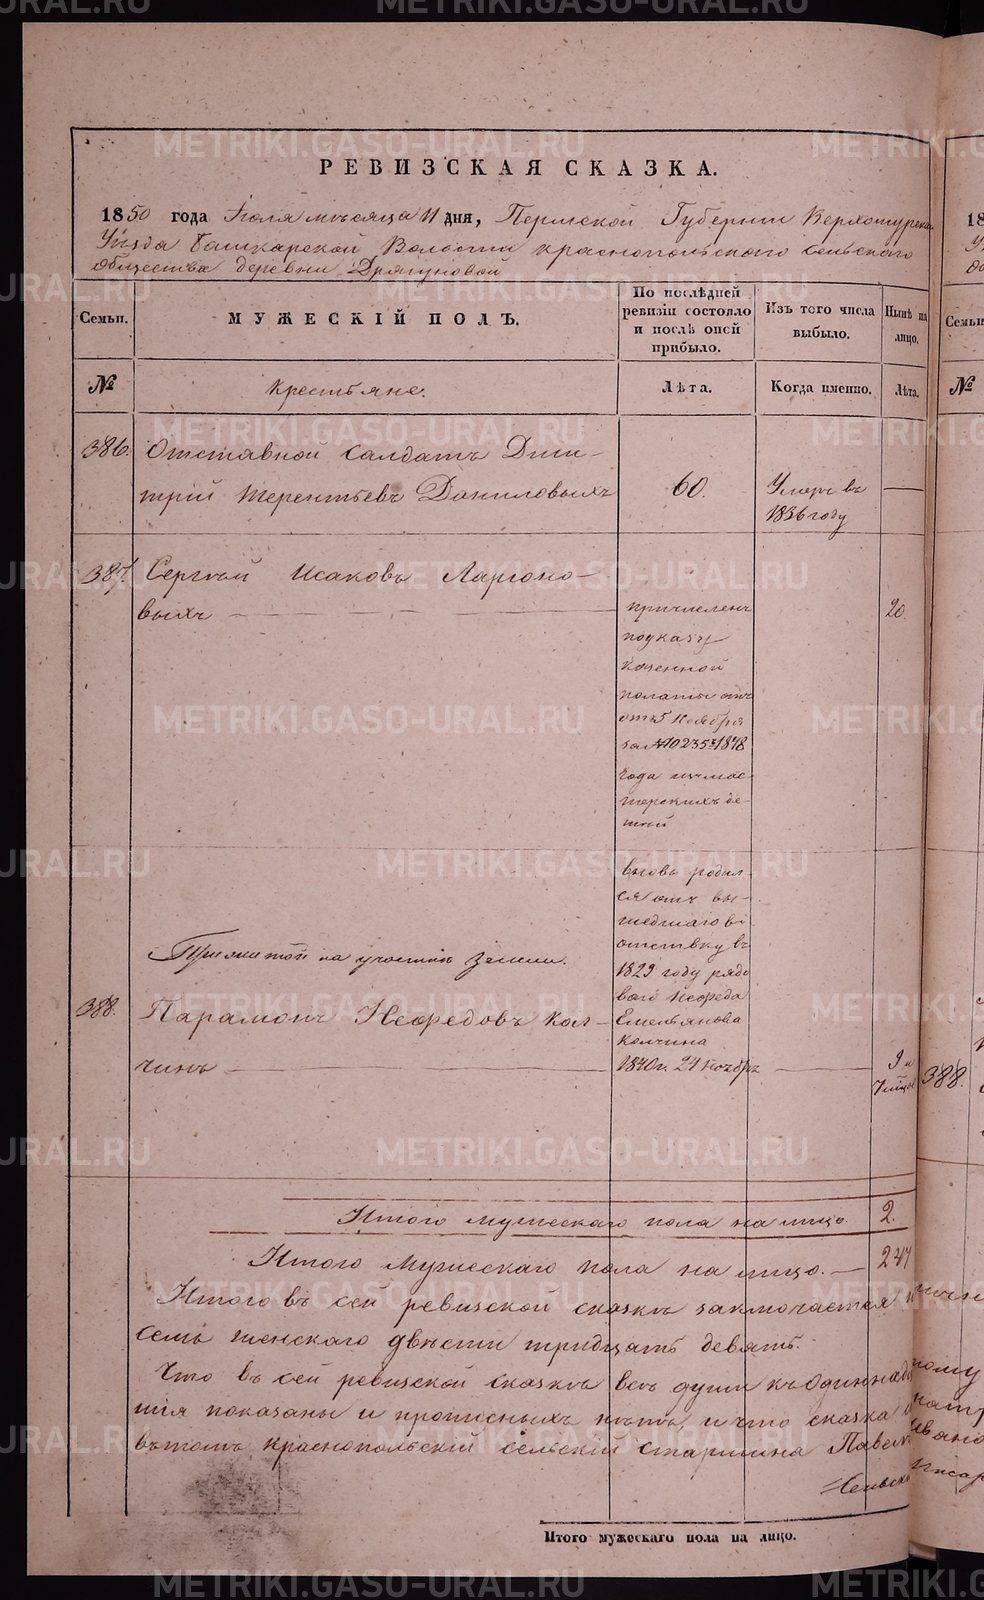 METRIKI.GASO-URAL.RU
РЕВИЗСКАЯ СКАЗКА.
1850 года Июля месяца 11 дня, Пермской Губернии Верхотурска
Уѣзда Башкарской Волости Краснопольскаго сельскаго
общества деревни Дрягуновой
Семьи.
МУЖЕСКІЙ ПОЛЪ.
По послѣдней
ревизіи состояло
и послѣ оной
прибыло.
Изъ того числа
выбыло.
Нынѣ на
лицо.
№
Крестьяне.
Лѣта.
Когда именно.
Лѣта.
386.
Отставной Солдатъ Дми-
трій Терентьевъ Даниловыхъ
60.
Умеръ въ
1836 году
387.
Сергѣй Исаковъ Ларіоно-
выхъ
причисленъ
по указу
казенной
палаты
отъ 5 Ноября
за № 10235 1848
года изъ мас-
терскихъ дѣ-
тей
20
Приписной на участки земли.
388.
Парамонъ Нефедовъ Кол-
чинъ
вновь родил-
ся отъ вы-
шедшаго въ
отставку въ
1829 году рядо
ваго Нефеда
Емельянова
Колчина
1840 г. 21 Ноябр
9 и
Итого мужескаго пола на лицо. 2.
Итого мужескаго пола на лицо. — 247
Итого въ сей ревизской сказкѣ заключается
семь женскаго двѣсти тридцать девять.
Что въ сей ревизской сказкѣ всѣ души къ Одиннад
тія показаны и прописныхъ нѣтъ, и что сказка
въ томъ Краснопольскій сельскій старшина Павел
Сельско
Итого мужескаго пола на лицо.
18
Семьи
№
388.